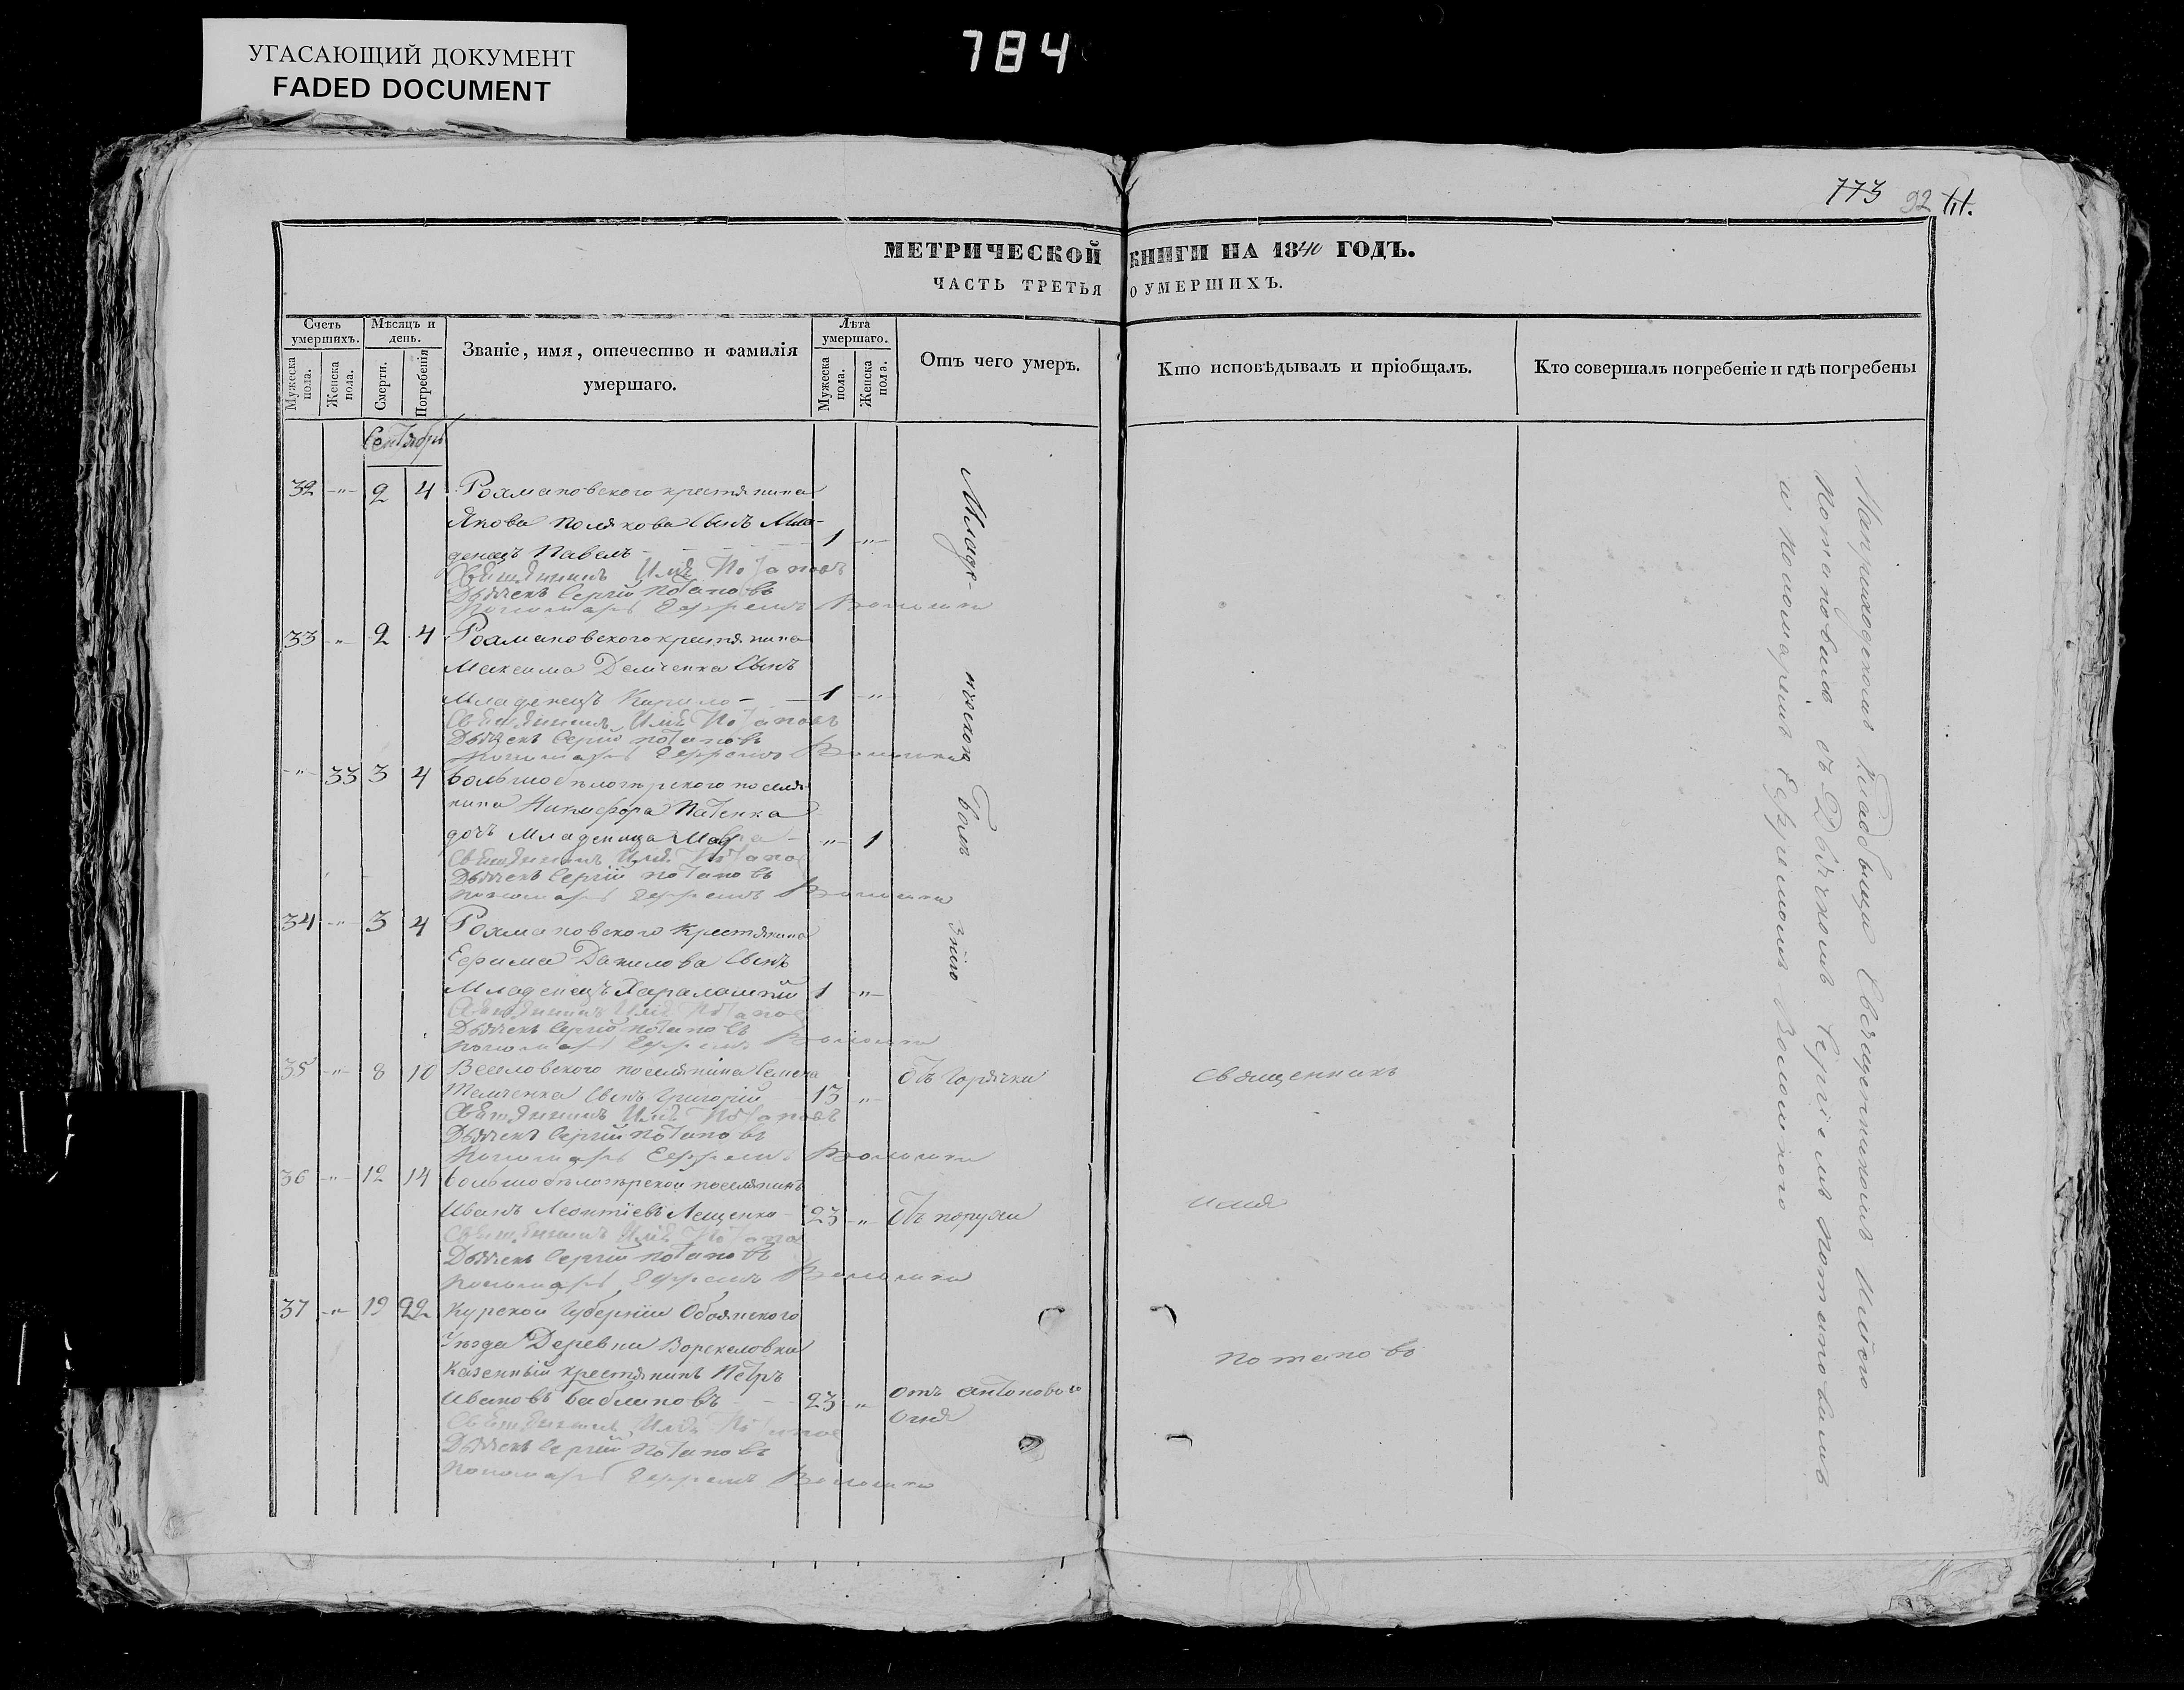 УГАСАЮЩИЙ ДОКУМЕНТ
FADED DOCUMENT
784
773 92
МЕТРИЧЕСКОЙ КНИГИ НА 1840 ГОДЪ.
ЧАСТЬ ТРЕТЬЯ О УМЕРШИХЪ.
Счетъ умершихъ.
Мужеска пола.
Женска пола.
Мѣсяцъ и день.
Смерти.
Погребенія
Званіе, имя, отечество и фамилія
умершаго.
Лѣта умершаго.
Мужеска пола.
Женска пола.
Отъ чего умеръ.
Кто исповѣдывалъ и пріобщалъ.
Кто совершалъ погребеніе и гдѣ погребены
Сентябрь
32 -"- 2 4 Рохмановского крестянина
Якова Полякова сынъ Мла-
денецъ Павелъ 1 -"-
Священникъ Илія Потаповъ
Дьячекъ Сергій Потаповъ
Пономарь Ефремъ
33 " 2 4 Рохмановского крестянина
Максима Демченка сынъ
Младенецъ Кирило 1 -"-
Священникъ Илія Потаповъ
Дьячекъ Сергій Потаповъ
Пономарь Ефремъ
-"- 33 3 4 Болшобѣлозѣрского поселя-
нина Никифора Патенка
дочъ Младеница Мавра -"- 1
Священникъ Илія Потапов
Дьячекъ Сергій Потаповъ
Пономарь Ефремъ
34 -"- 3 4 Рохмановского крестянина
Ефима Данилова сынъ
Младенецъ Харалампий 1 -"-
Священникъ Илія Потапов
Дьячекъ Сергій Потаповъ
Пономарь Ефремъ
Младе-
нческою
болѣ
знію
35 -"- 8 10 Веселовского поселянина Семена
сынъ Григорий 13 " Отъ горячки
Священникъ Илія Потаповъ
Дьячекъ Сергій Потаповъ
Пономарь Ефремъ
36 -"- 12 14 Болшобѣлозѣрской поселянинъ
Иванъ Леонтіевъ Лещенко 23 "
Священникъ Илія Потапов
Дьячекъ Сергій Потаповъ
Пономарь Ефремъ
37 -"- 19 22 Курской Губерніи Обоянского
Уѣзда Деревни
Казенный крестянинъ Петръ
Ивановъ 23 " отъ антонового
огня
Священникъ Илія Потапов
Дьячекъ Сергій Потаповъ
Пономарь Ефремъ
Священникъ
Илія
Потаповъ
На приходскомъ Кладбищи Священникомъ Иліею
Потаповимъ съ Дьячкомъ Сергіемъ Потаповимъ
и пономаремъ Ефремомъ